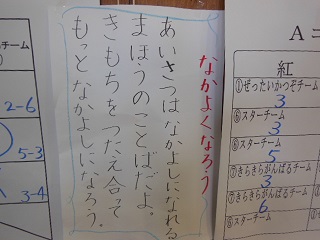 なかよくなろう
あいさつはなかよしになれる
まほうのことばだよ。
きもちをつたえ合って
もっとなかよしになろう。
チーム
2-6
5-3
3-4
A=
紅
①ぜったいかつぞチーム
3
⑥スターチーム
3
⑥スターチーム
5
⑦きらきらがんばるチーム
3
⑦きらきらがんばるチーム
6
⑧スターチーム